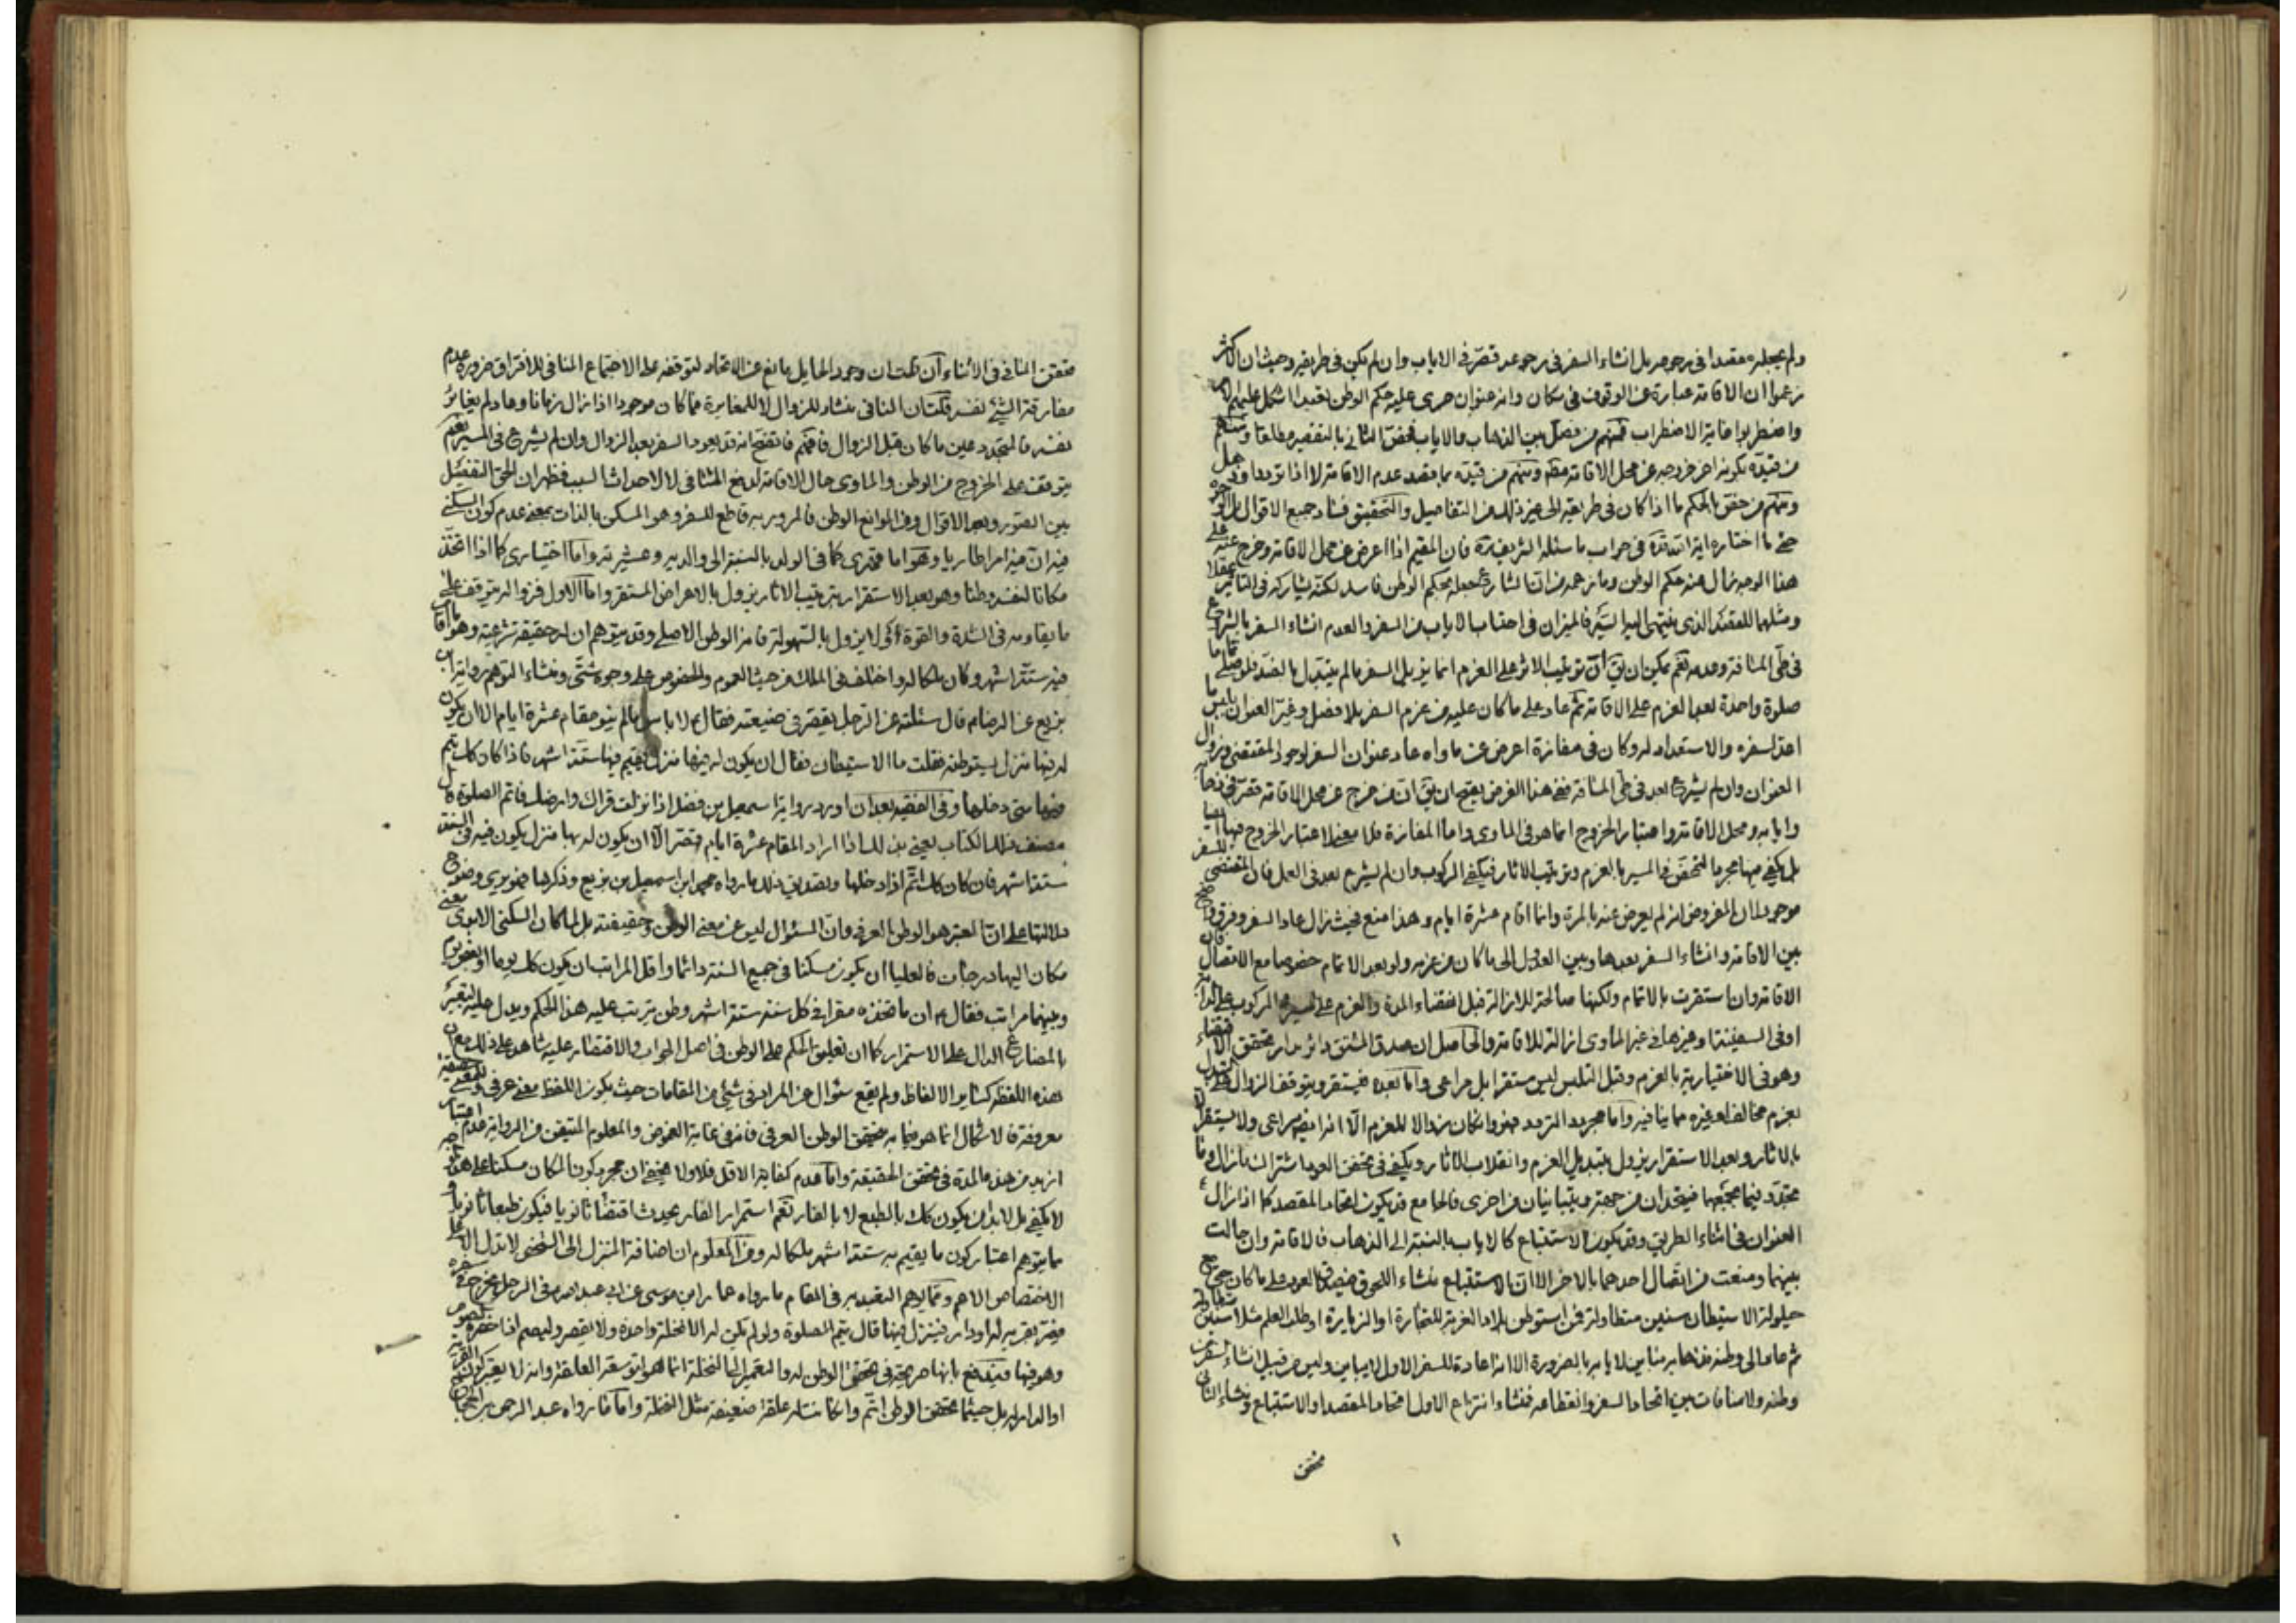 ولم يجعله مقصدا في رجوعه بل انشاء السفر في رجوعه قصّر في الاياب وان لم يكن في طريقه وحيث ان الاكثر
زعموا ان الاقامة عبارة عن الوقوف في مكان وانه عنوان جرى عليه حكم الوطن تعبدا اشكل عليهم
واضطربوا غاية الاضطراب فمنهم من فصل بين الذهاب والاياب فحقق الثاني بالتقصير مطلقا ومنهم
من قيده بكونه اخر خروجه عن محل الاقامة ومنهم من قيده بما يقصد عدم الاقامة لا اذا تردد او ذهل
ومنهم من حقق الحكم ما اذا كان في طريقه الى غير ذلك من التفاصيل والتحقيق فساد جميع الاقوال
حتى ما اختاره اية الله في جواب مسئلة الشريفة فان المقيم اذا اعرض عن محل الاقامة وخرج عنه على
هذا الوجه زال عنه حكم الوطن وما زعمه من ان الشارع جعله بحكم الوطن فاسد لكنه يشاركه في التاثير
ومثلهما المقصد الذي ينتهي اليه السير فالميزان في احتساب الاياب من السفر والعدم انشاء السفر بالشروع
في طي المسافة وعدمه نعم يمكن ان يق ان ترتيب الاثر على العزم انما يزيل السفر ما لم يتبدل بالضد فلو صلى
صلوة واحدة بعد العزم على الاقامة ثم عاد على ما كان عليه من عزم السفر بلا فصل وغير العنوان
اعد لسفره والاستعداد له وكان في مفازة اعرض عن ماواه عاد عنوان السفر لوجود المقتضي وزوال
العنوان وان لم يشرع بعد في طي المسافة ففي هذا الفرض يصح ان يق ان من خرج عن محل الاقامة قصر في ذهابه
وايابه ومحل الاقامة واعتبار الخروج انما هو في الماوى واما المفازة فلا معنى لاعتبار الخروج منها
بل يكفي فيها مجرد التحقق في المسير بالعزم وترتيب الاثار فيكفي الركوب وان لم يشرع بعد في العمل فان المقتضي
موجود لان المفروض انه لم يعرض عنه بالمرة وانما اقام عشرة ايام وهذا منع بحيث زال عاد السفر وفرق
بين الاقامة وانشاء السفر بعدها وبين العدول الى ما كان من عزمه ولو بعد الاتمام خصوصا مع الاتصال فان
الاقامة وان استقرت بالاتمام ولكنها صالحة للازالة قبل انقضاء المدة والعزم على المسير مع الركوب على الدابة
او في السفينة او غيرها في غير الماوى ازالة للاقامة والحاصل ان صدق المشتق دائر مدار تحقق الاقتضاء
وهو في الاختيارية بالعزم وقبل التلبس ليس مستقرا بل مراعى واما بعده فيستقر ويتوقف الزوال على التبدل
بعزم مخالف او غيره مما ينافيه واما مجرد التردد فهو وان كان زوالا للعزم الا انه ايض مراعى ولا يستقر
بالاثار وبعد الاستقرار يزول بتبديل العزم وانقلاب الاثار ويكفي في تحقق العود اشتراك ما زال وما
تجدد فيما يجمعها فيتحدان من جهة ويتباينان من اخرى فالجامع قد يكون اتحاد المقصد كما اذا زال
العنوان في اثناء الطريق وقد يكون الاستتباع كالاياب بالنسبة الى الذهاب فالاقامة وان حالت
بينهما ومنعت من اتصال احدهما بالاخر الا ان الاستتباع منشاء اللحوق فيصدق العود على ما كان
حيلولة الاستيطان سنين متطاولة فمن استوطن بلاد الغربة للتجارة او الزيارة او طلب العلم مثلا سنين
ثم عاد الى وطنه فذهابه مباين لايابه بالضرورة الا انه اعادة للسفر الاول لا يباين وليس من قبيل انشاء السفر من
وطنه ولا منافات بين اتحاد السفر وانقطاعه فمنشاء انتزاع الاول اتحاد المقصد او الاستتباع ومنشاء الثاني
تحقق
تحقق المنافي في الاثناء ان قلت ان وجود الحايل مانع عن الاتحاد لتوقفه على الاجتماع المنافي للافتراق ضرورة عدم
مفارقة الشيء لنفسه قلت ان المنافي منشاء للزوال لا للمغايرة فما كان موجودا اذا زال زمانا وعاد لم يغاير
نفسه فالمتجدد عين ما كان قبل الزوال فافهم فاتضح انه قد يعود السفر بعد الزوال وان لم يشرع في السير نعم
يتوقف على الخروج من الوطن والماوى حال الاقامة لدفع المنافي لا لاحداث السبب فظهر ان الحق التفصيل
بين الصور وبعد الاقوال ومن الموانع الوطن فالمرور به قاطع للسفر وهو المسكن بالذات بمعنى عدم كون السكنى
فيه امرا طاريا وهو اما قهري كما في الولد بالنسبة الى والديه وعشيرته واما اختياري كما اذا اتخذ
مكانا لنفسه وطنا وهو بعد الاستقرار بترتيب الاثار يزول بالاعراض المستقر واما الاول فزواله يتوقف على
ما يقاومه في الشدة والقوة اي لا يزول بالسهولة فانه الوطن الاصلي وقد يتوهم ان له حقيقة شرعية وهو ما اقام
فيه ستة اشهر وكان ملكا له واختلف في الملك من حيث العموم والخصوص على وجوه شتى ومنشاء التوهم رواية ابن
بزيع عن الرضا ع قال سئلته عن الرجل يقصر في ضيعته فقال ع لا باس ما لم ينو مقام عشرة ايام الا ان يكون
له فيها منزل يستوطنه فقلت ما الاستيطان فقال ان يكون له فيها منزل يقيم فيها ستة اشهر فاذا كان كك يتم
فيها متى دخلها وفي الفقيه بعد ان اورد رواية اسمعيل بن فضل اذا نزلت قراك وارضك فاتم الصلوة قال
مصنف هذا الكتاب يعني بذلك اذا اراد المقام عشرة ايام قصر الا ان يكون له بها منزل يكون فيه في السنة
ستة اشهر فان كان كك اتم اذا دخلها وتصديق ذلك ما رواه محمد ابن اسمعيل بن بزيع وذكرها
دلالتها على ان المعتبر هو الوطن العرفي وان السئوال ليس عن معنى الوطن وحقيقته بل لما كان السكنى
مكان اليها درجات فالعليا ان يكون مسكنا في جميع السنة دائما واقل المراتب ان يكون كك يوما او
وبينهما مراتب فقال ع ان ما تتخذه مقرا في كل سنة ستة اشهر وطن يترتب عليه هذا الحكم ويدل عليه التعبير
بالمضارع الدال على الاستمرار كما ان تعليق الحكم على الوطن في اصل الجواب والاقتصار عليه شاهد على ذلك مع ان
هذه اللفظة كساير الالفاظ ولم يقع سئوال عن المراد في شيء من المقامات حيث يكون اللفظ معنى عرفي
معروفة فالاشكال انما هو فيما به تحقق الوطن العرفي فانه في غاية الغموض والمعلوم المتيقن من الرواية عدم اعتبار
ازيد من هذه المدة في تحقق الحقيقة واما عدم كفاية الاقل فلا ولا يخفى ان مجرد كون المكان مسكنا على هذا
لا يكفي بل لابد ان يكون كك بالطبع لا بالقسر نعم استمرار القاسر يحدث اقتضاء ثانويا فيكون طبعا ثانويا
ما يتوهم اعتبار كون ما يقيم به ستة اشهر ملكا له ومن المعلوم ان اضافة المنزل الى الشخص لا تدل الا على
الاختصاص الاعم ومما يوهم التقييد في المقام ما رواه عمار ابن موسى عن ابي عبد الله ع في الرجل يخرج في سفره
فيمر بقرية له او دار فينزل فيها قال يتم الصلوة ولو لم يكن له الا نخلة واحدة ولا يقصر وليصم اذا حضره الصوم
وهو فيها فيندفع بانها صريحة في تحقق الوطن له والتعميم الى النخلة انما هو لتوسعة العلقة وانه لا يعتبر كون القرية
او الدار له بل حيثما تحقق الوطن اتم وان كانت له علقة ضعيفة مثل النخلة واما ما رواه عبد الرحمن بن الحجاج